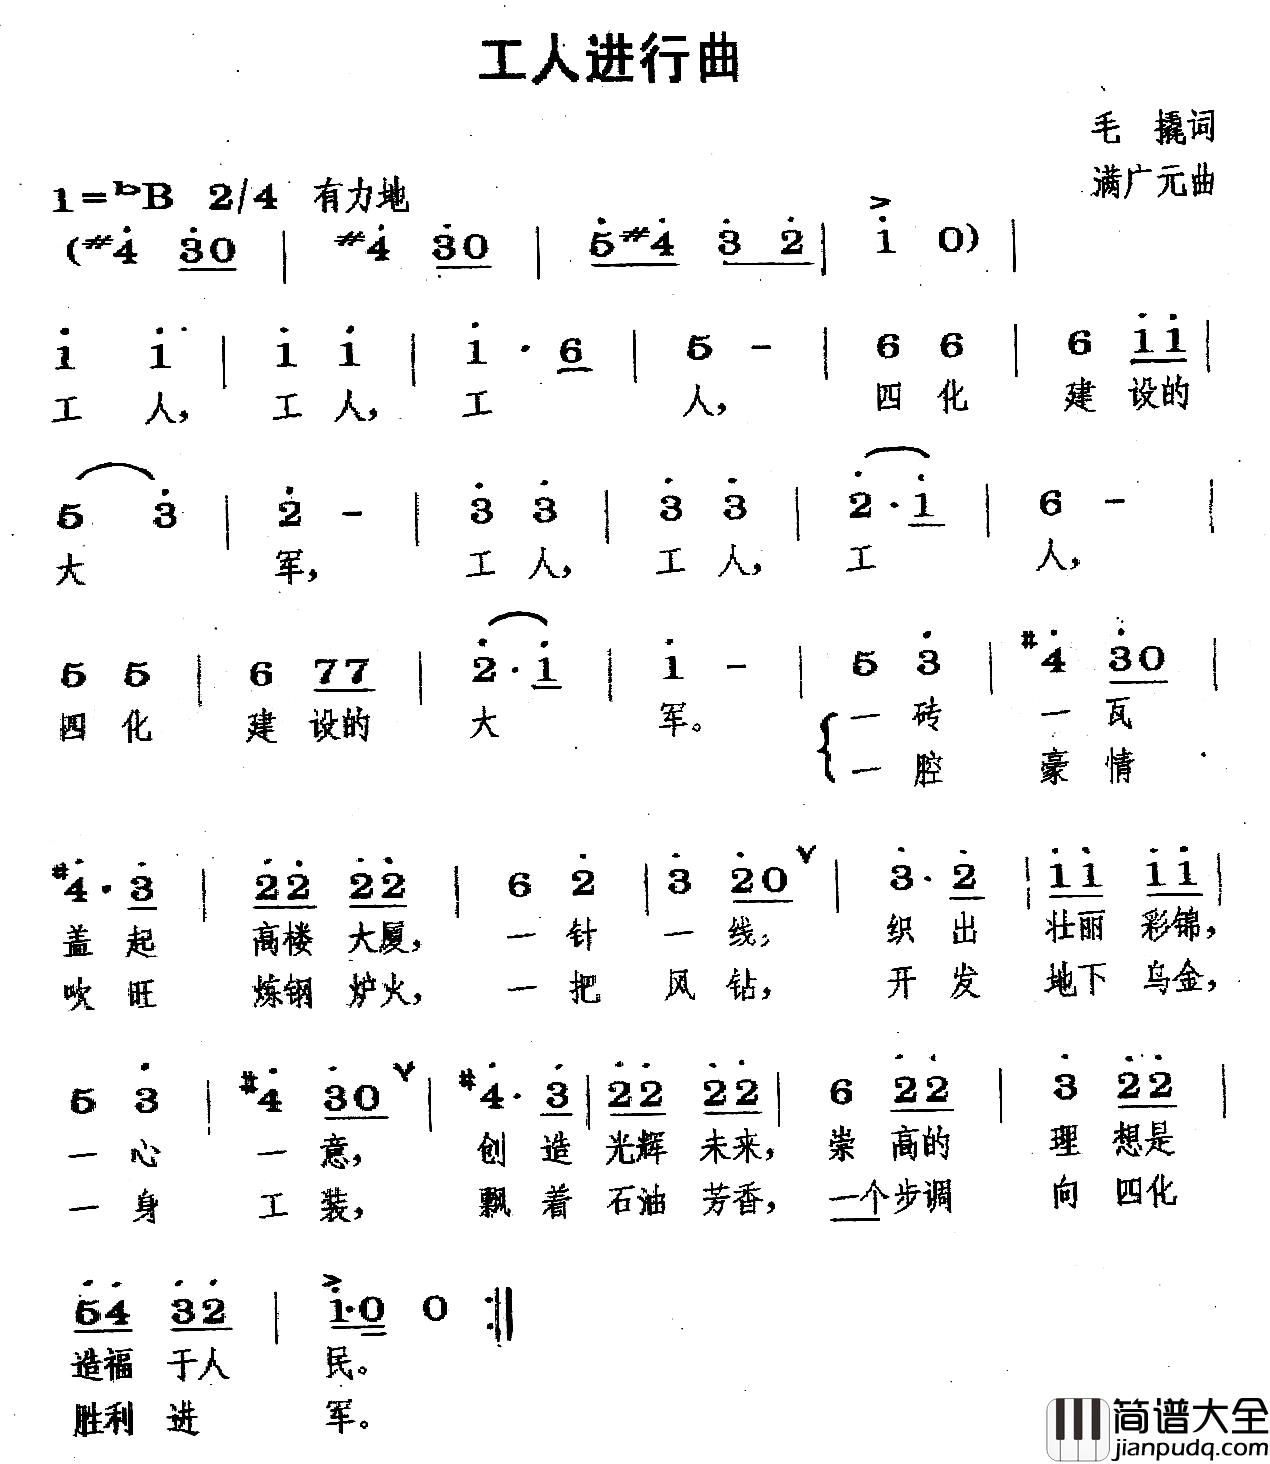 工人进行曲
毛 撬词
1=♭B 2/4 有力地
满广元曲
(#4̇ 3̇0 | #4̇ 3̇0 | 5̇#4̇ 3̇ 2̇ | 1̇ 0) |
1̇ 1̇ | 1̇ 1̇ | 1̇ · 6 | 5 - | 6 6 | 6 1̇1̇ |
工 人, 工 人, 工 人, 四 化 建 设的
5 3̇ | 2̇ - | 3̇ 3̇ | 3̇ 3̇ | 2̇ · 1̇ | 6 - |
大 军, 工 人, 工 人, 工 人,
5 5 | 6 77 | 2̇ · 1̇ | 1̇ - | 5 3̇ | #4̇ 3̇0 |
四 化 建 设的 大 军。 一 砖 一 瓦
一 腔 豪 情
#4̇ · 3̇ | 2̇2̇ 2̇2̇ | 6 2̇ | 3̇ 2̇0 | 3̇ · 2̇ | 1̇1̇ 1̇1̇ |
盖 起 高楼 大厦, 一 针 一 线, 织 出 壮丽 彩锦,
吹 旺 炼钢 炉火, 一 把 风 钻, 开 发 地下 乌金,
5 3̇ | #4̇ 3̇0 | #4̇ · 3̇ | 2̇2̇ 2̇2̇ | 6 2̇2̇ | 3̇ 2̇2̇ |
一 心 一 意, 创 造 光辉 未来, 崇 高的 理 想是
一 身 工 装, 飘 着 石油 芳香, 一个步调 向 四化
5̇4̇ 3̇2̇ | 1̇·0 0 :||
造福 于人 民。
胜利 进 军。
简谱大全
jianpudq.com